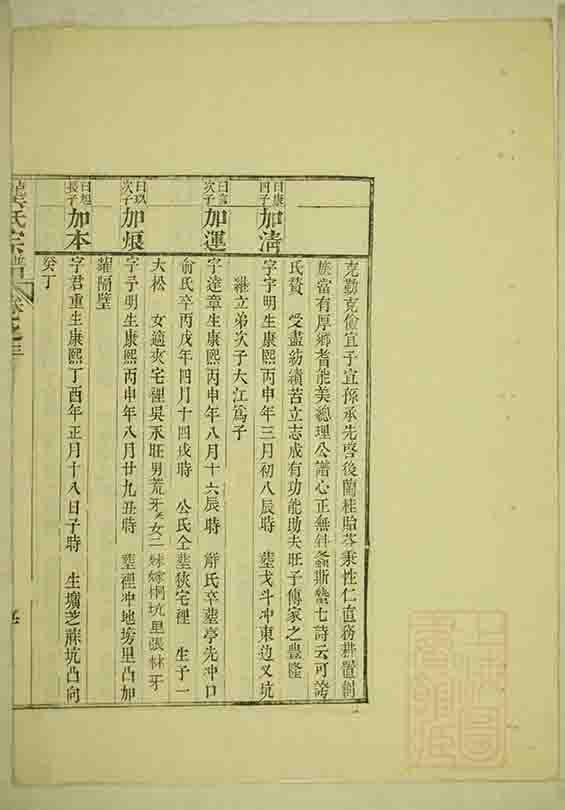 克勤克儉宜子宜孫承先啓後蘭桂貽芬秉性仁直務耕置創
族當有厚鄉耆能美總理公譜心正無斜螽斯蟄七詩云可誇
氏賛 受盡紡績苦立志成有功能助夫旺子傳家之豊隆
曰康四子 加清 字字明生康熙丙申年三月初八辰時 塟戈斗冲東边叉坑
継立弟次子大江爲子
次子 加運 字達章生康熙丙申年八月十六辰時 觧氏卒塟亭先冲口
俞氏卒丙戊年四月十四戌時 公氏仝塟狹宅裡 生子一
大松 女適夾宅裡吳永旺男荒牙 女二妹嫁桐坑里張林牙
曰玖次子 加烺 字予明生康熙丙申年八月廿九丑時 塟裡冲地塝里凸加
耀隔壁
曰旭長子 加本 字君重生康熙丁酉年正月十八日子時 生壙芝蔴坑凸向
癸丁
氏宗譜 卷之三